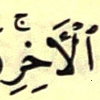 ٱلْأَخِرِۚ